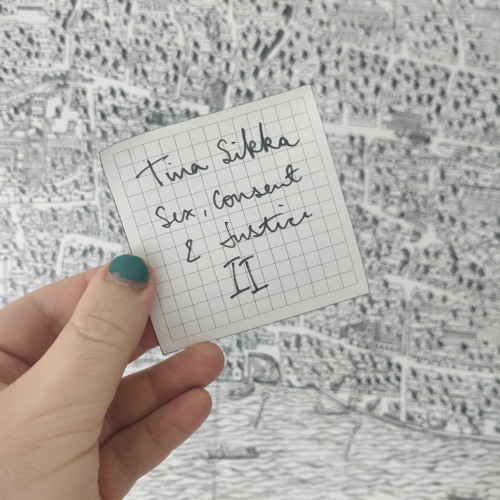 Tina Sikka
Sex, Consent
& Justice
II